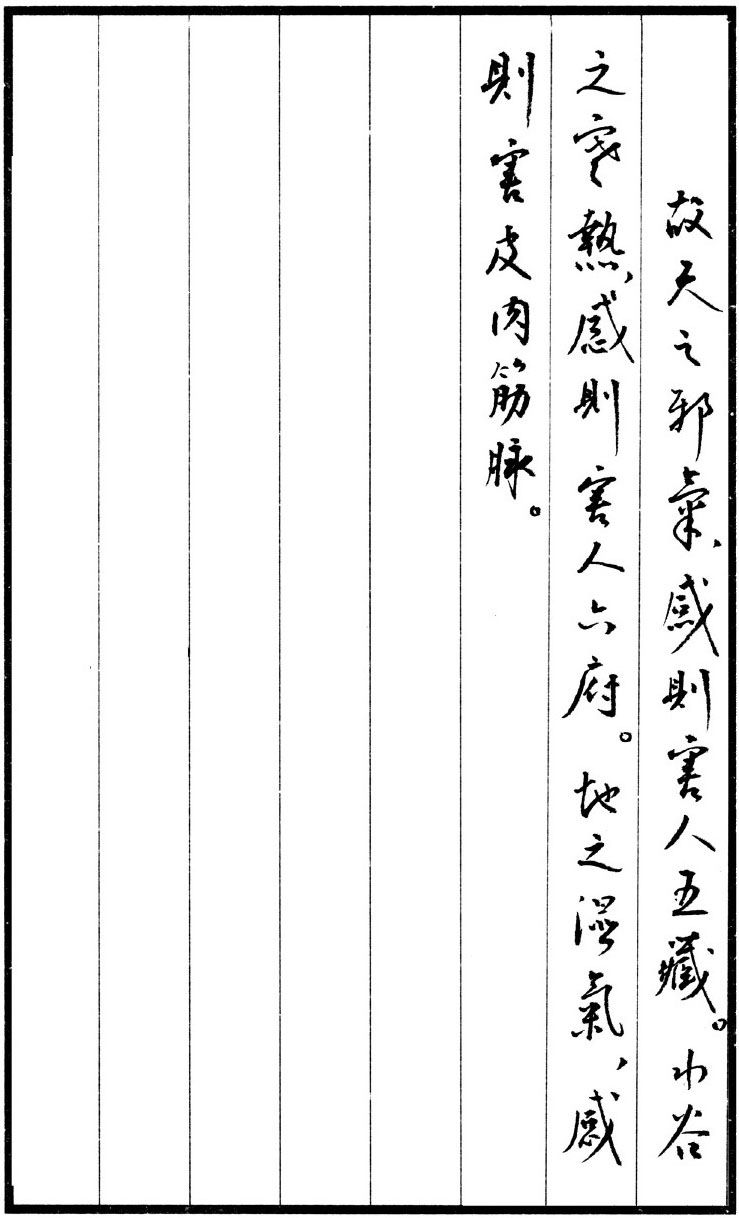 故天之邪氣、感則害人五藏。水谷
之寒熱、感則害人六府。地之濕氣、感
則害皮肉筋脉。